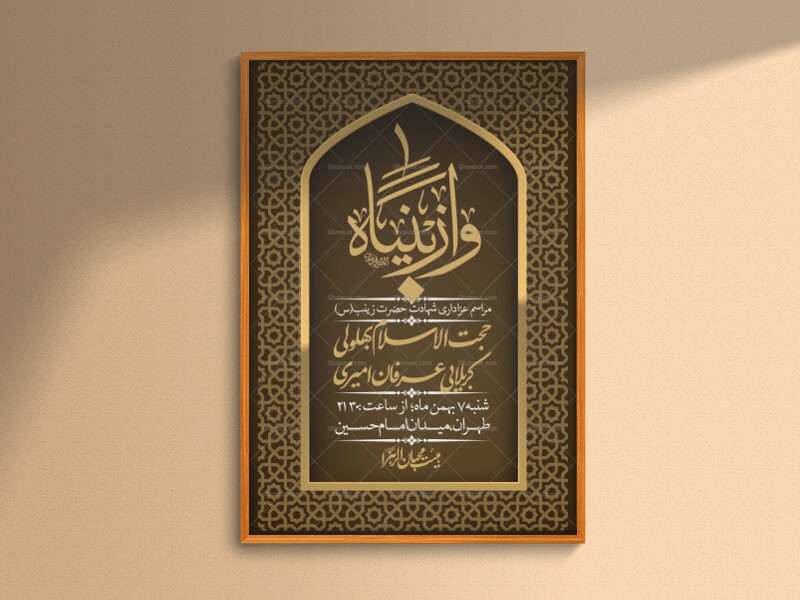 مراسم عزاداری شهادت حضرت زینب(س)
حجت الاسلام بهلولی
کربلایی عرفان امیری
شنبه ۷ بهمن ماه؛ از ساعت: ۲۱:۳۰
طهران، میدان امام حسین
هیئت محبان الزهرا